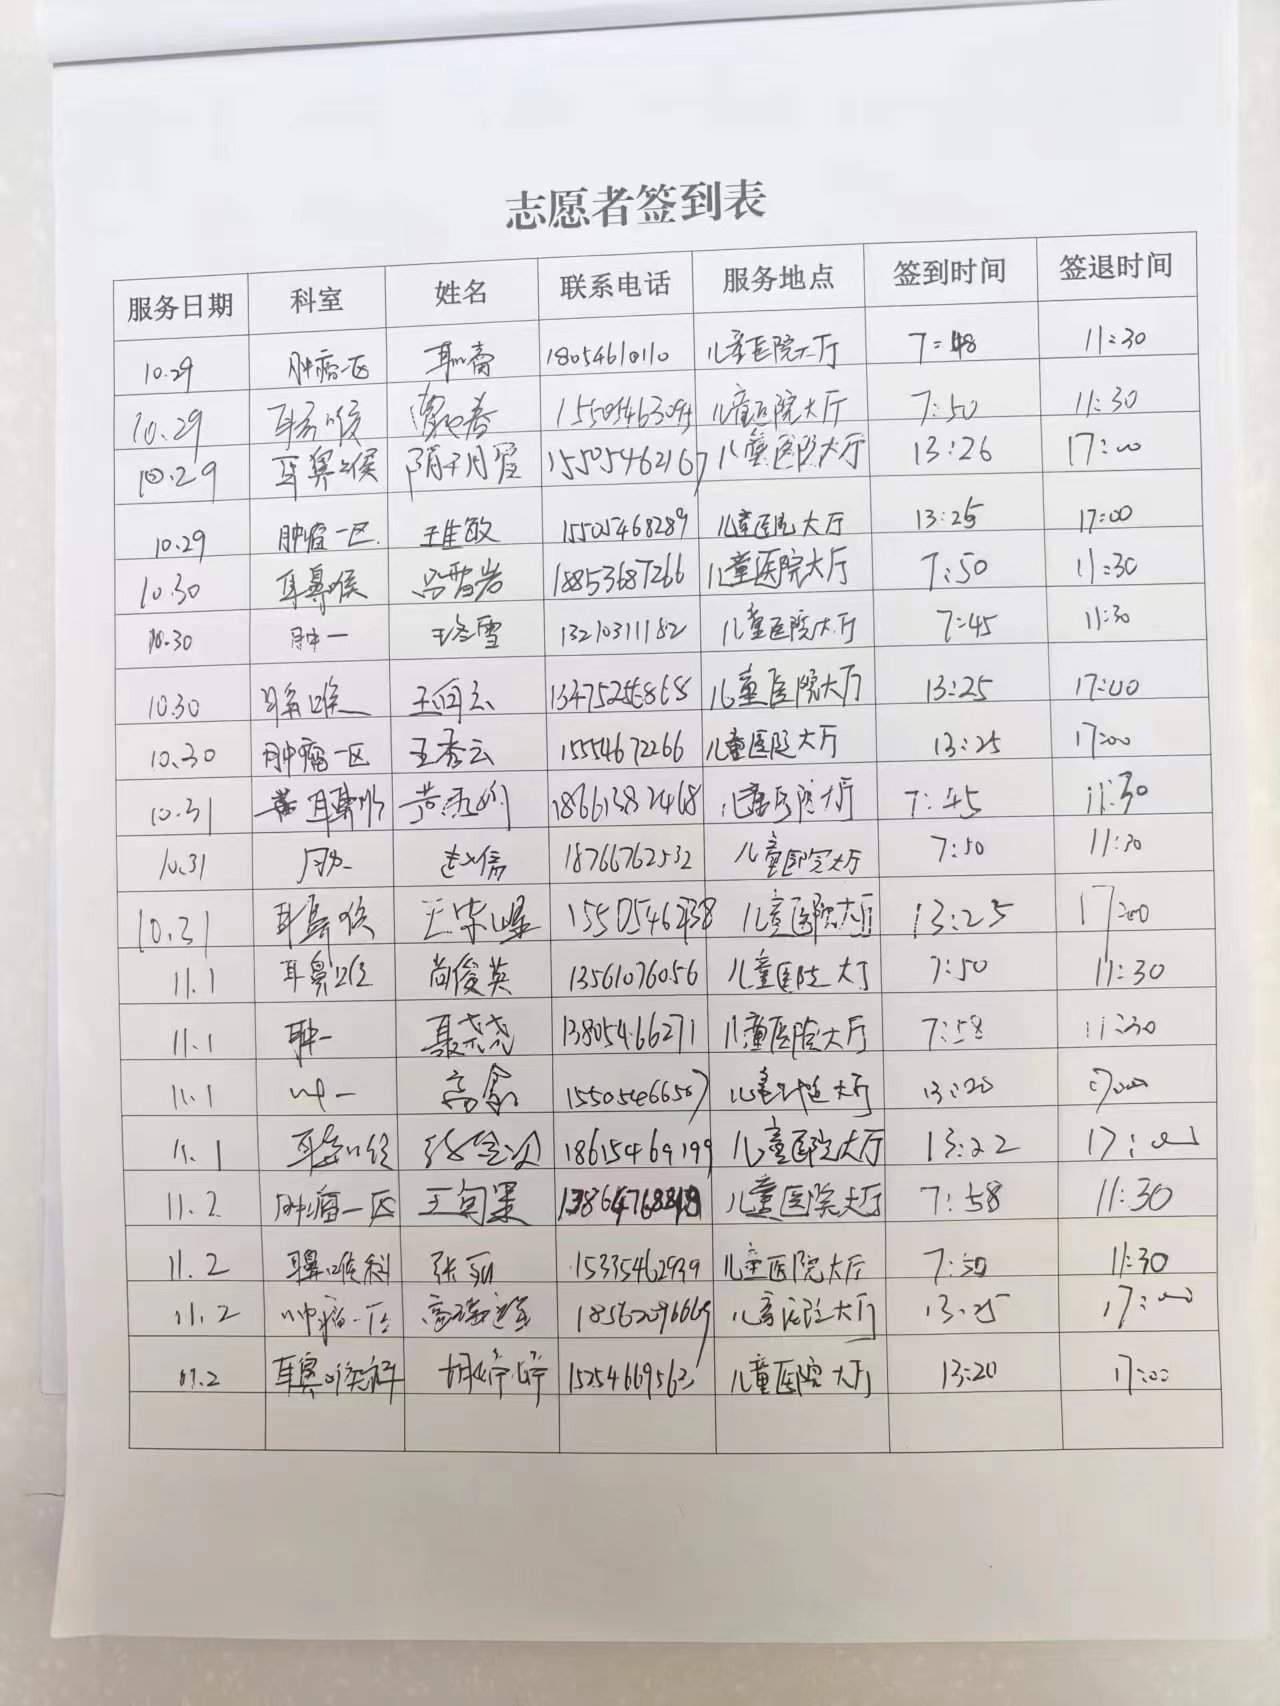 志愿者签到表
服务日期 科室 姓名 联系电话 服务地点 签到时间 签退时间
10.29 肿瘤一区 18054610110 儿童医院大厅 7:48 11:30
10.29 耳鼻喉 儿童医院大厅 7:50 11:30
10.29 耳鼻喉 15505462167 儿童医院大厅 13:26 17:00
10.29 肿瘤一区 王生敏 15505468289 儿童医院大厅 13:25 17:00
10.30 耳鼻喉 吕雪岩 18853687266 儿童医院大厅 7:50 11:30
10.30 肿一 王冬雪 13210311182 儿童医院大厅 7:45 11:30
10.30 耳鼻喉 儿童医院大厅 13:25 17:00
10.30 肿瘤一区 王秀云 15554672266 儿童医院大厅 13:25 17:00
10.31 耳鼻喉 18661382468 儿童医院大厅 7:45 11:30
10.31 肿一 赵倩 18766762532 儿童医院大厅 7:50 11:30
10.31 耳鼻喉 儿童医院大厅 13:25 17:00
11.1 耳鼻喉 尚俊英 13561076056 儿童医院大厅 7:50 11:30
11.1 肿一 聂尧尧 13805466271 儿童医院大厅 7:58 11:30
11.1 肿一 15505466507 儿童医院大厅 13:20 17:00
11.1 耳鼻喉 18615469199 儿童医院大厅 13:22 17:00
11.2 肿瘤一区 儿童医院大厅 7:58 11:30
11.2 耳鼻喉科 15335462939 儿童医院大厅 7:50 11:30
11.2 肿瘤一区 18562096669 儿童医院大厅 13:25 17:00
11.2 耳鼻喉科 胡婷婷 儿童医院大厅 13:20 17:00